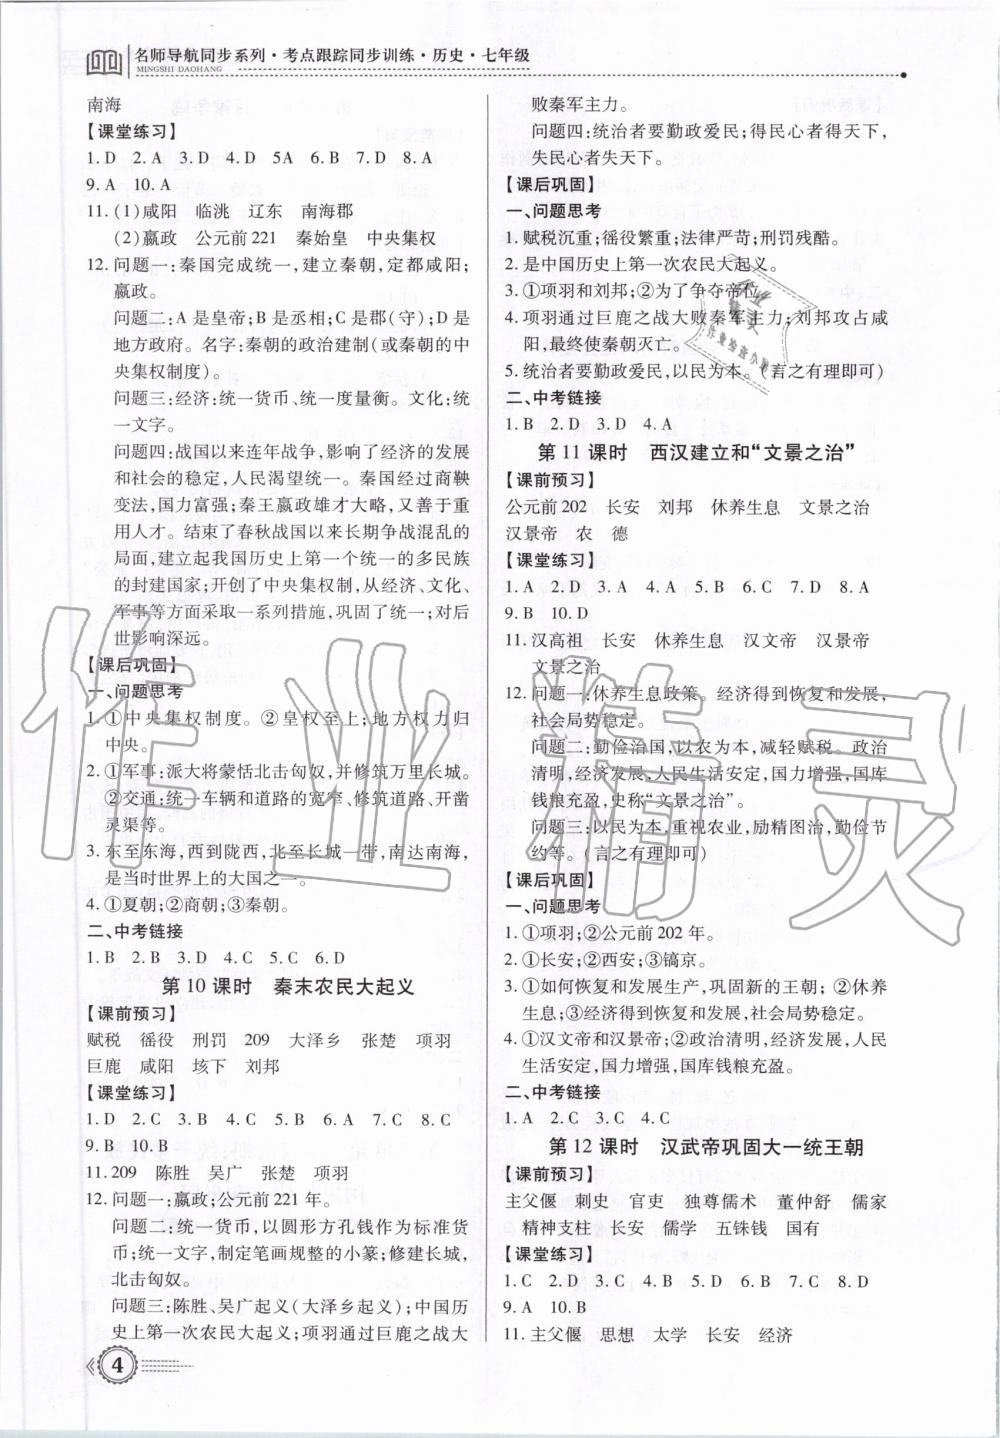 名师导航同步系列·考点跟踪同步训练·历史·七年级
MINGSHI DAOHANG
南海
【课堂练习】
1. D 2. A 3. D 4. D 5A 6. B 7. D 8. A
9. A 10. A
11. (1)咸阳 临洮 辽东 南海郡
(2)嬴政 公元前221 秦始皇 中央集权
12. 问题一:秦国完成统一,建立秦朝,定都咸阳;
嬴政。
问题二:A是皇帝;B是丞相;C是郡(守);D是
地方政府。名字:秦朝的政治建制(或秦朝的中
央集权制度)。
问题三:经济:统一货币、统一度量衡。文化:统
一文字。
问题四:战国以来连年战争,影响了经济的发展
和社会的稳定,人民渴望统一。秦国经过商鞅
变法,国力富强;秦王嬴政雄才大略,又善于重
用人才。结束了春秋战国以来长期争战混乱的
局面,建立起我国历史上第一个统一的多民族
的封建国家;开创了中央集权制,从经济、文化、
军事等方面采取一系列措施,巩固了统一;对后
世影响深远。
【课后巩固】
一、问题思考
1. ①中央集权制度。②皇权至上;地方权力归
中央。
2. ①军事:派大将蒙恬北击匈奴,并修筑万里长城。
②交通:统一车辆和道路的宽窄、修筑道路、开凿
灵渠等。
3. 东至东海,西到陇西,北至长城一带,南达南海,
是当时世界上的大国之一。
4. ①夏朝;②商朝;③秦朝。
二、中考链接
1. B 2. B 3. D 4. C 5. C 6. D
第10课时 秦末农民大起义
【课前预习】
赋税 徭役 刑罚 209 大泽乡 张楚 项羽
巨鹿 咸阳 垓下 刘邦
【课堂练习】
1. D 2. C 3. B 4. B 5. C 6. A 7. C 8. C
9. B 10. B
11. 209 陈胜 吴广 张楚 项羽
12. 问题一:嬴政;公元前221年。
问题二:统一货币,以圆形方孔钱作为标准货
币;统一文字,制定笔画规整的小篆;修建长城,
北击匈奴。
问题三:陈胜、吴广起义(大泽乡起义);中国历
史上第一次农民大起义;项羽通过巨鹿之战大
败秦军主力。
问题四:统治者要勤政爱民;得民心者得天下,
失民心者失天下。
【课后巩固】
一、问题思考
1. 赋税沉重;徭役繁重;法律严苛;刑罚残酷。
2. 是中国历史上第一次农民大起义。
3. ①项羽和刘邦;②为了争夺帝位。
4. 项羽通过巨鹿之战大败秦军主力;刘邦攻占咸
阳,最终使秦朝灭亡。
5. 统治者要勤政爱民,以民为本。(言之有理即可)
二、中考链接
1. B 2. D 3. D 4. A
第11课时 西汉建立和“文景之治”
【课前预习】
公元前202 长安 刘邦 休养生息 文景之治
汉景帝 农 德
【课堂练习】
1. A 2. D 3. A 4. A 5. B 6. C 7. D 8. A
9. B 10. D
11. 汉高祖 长安 休养生息 汉文帝 汉景帝
文景之治
12. 问题一:休养生息政策。经济得到恢复和发展,
社会局势稳定。
问题二:勤俭治国,以农为本,减轻赋税。政治
清明,经济发展,人民生活安定,国力增强,国库
钱粮充盈,史称“文景之治”。
问题三:以民为本,重视农业,励精图治,勤俭节
约等。(言之有理即可)
【课后巩固】
一、问题思考
1. ①项羽;②公元前202年。
2. ①长安;②西安;③镐京。
3. ①如何恢复和发展生产,巩固新的王朝;②休养
生息;③经济得到恢复和发展,社会局势稳定。
4. ①汉文帝和汉景帝;②政治清明,经济发展,人民
生活安定,国力增强,国库钱粮充盈。
二、中考链接
1. A 2. C 3. C 4. C
第12课时 汉武帝巩固大一统王朝
【课前预习】
主父偃 刺史 官吏 独尊儒术 董仲舒 儒家
精神支柱 长安 儒学 五铢钱 国有
【课堂练习】
1. C 2. D 3. C 4. D 5. B 6. B 7. D 8. D
9. A 10. B
11. 主父偃 思想 太学 长安 经济
4
作业精灵